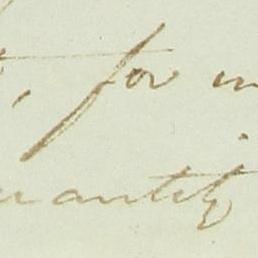 , for
uantity